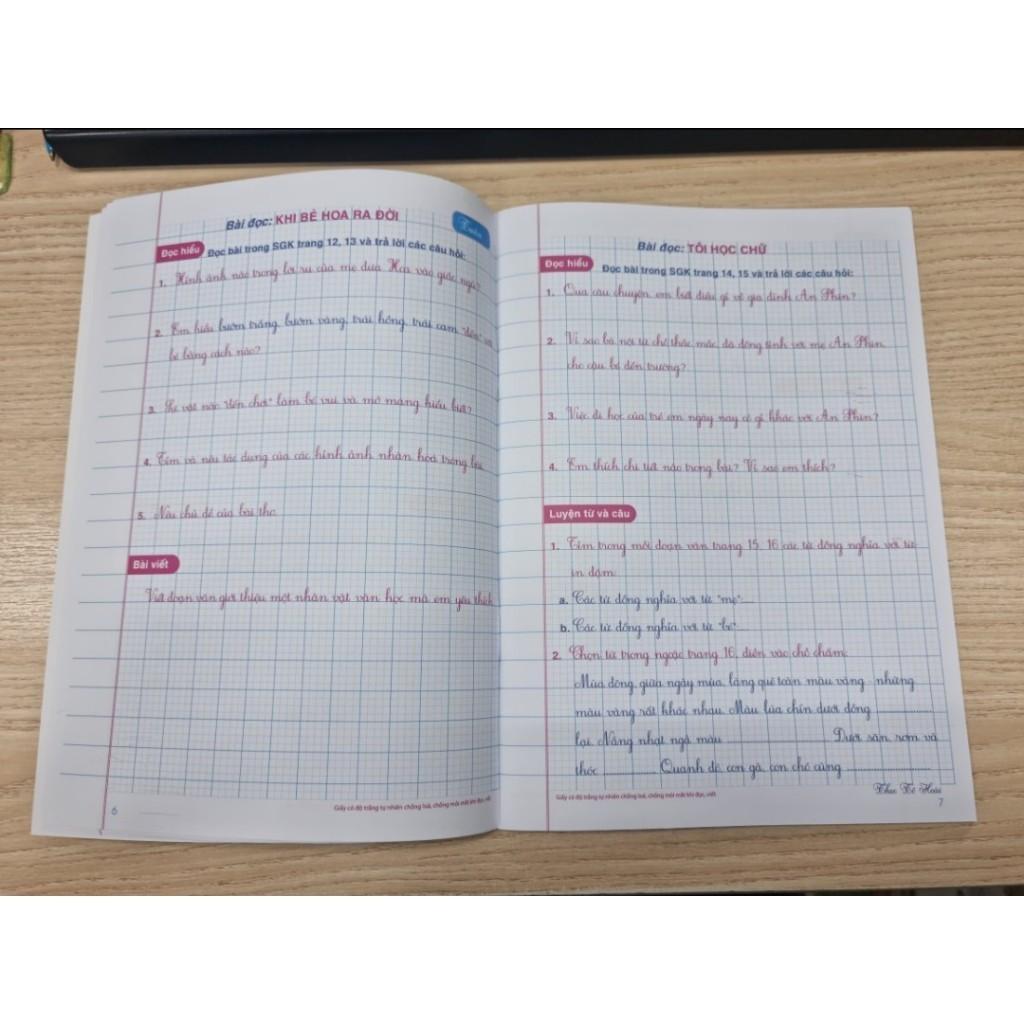 Bài đọc: KHI BÉ HOA RA ĐỜI
Tuần
Đọc hiểu Đọc bài trong SGK trang 12, 13 và trả lời các câu hỏi:
1. Hình ảnh nào trong lời ru của mẹ đưa Hoa vào giấc ngủ?
2. Em hiểu bướm trắng, bướm vàng, trái hồng, trái cam "đến" với
bé bằng cách nào?
3. Sự vật nào "đến chơi" làm bé vui và mở mang hiểu biết?
4. Tìm và nêu tác dụng của các hình ảnh nhân hoá trong
5. Nêu chủ đề của bài thơ.
Bài viết
Viết đoạn văn giới thiệu một nhân vật văn học mà em yêu thích.
Giấy có độ trắng tự nhiên chống loá, chống mỏi mắt khi đọc, viết
6
Bài đọc: TÔI HỌC CHỮ
Đọc hiểu Đọc bài trong SGK trang 14, 15 và trả lời các câu hỏi:
1. Qua câu chuyện, em biết điều gì về gia đình A Phin?
2. Vì sao bà nội từ chỗ thắc mắc đã đồng tình với mẹ A Phin
cho cậu bé đến trường?
3. Việc đi học của trẻ em ngày nay có gì khác với A Phin?
4. Em thích chi tiết nào trong bài? Vì sao em thích?
Luyện từ và câu
1. Tìm trong mỗi đoạn văn trang 15, 16 các từ đồng nghĩa với từ
in đậm:
a. Các từ đồng nghĩa với từ "mẹ":
b. Các từ đồng nghĩa với từ "bé":
2. Chọn từ trong ngoặc trang 16, điền vào chỗ chấm:
Mùa đông, giữa ngày mùa, làng quê toàn màu vàng - những
màu vàng rất khác nhau. Màu lúa chín dưới đồng
lại. Nắng nhạt ngả màu Dưới sân, rơm và
thóc Quanh đó, con gà, con chó cũng
Theo Tô Hoài
Giấy có độ trắng tự nhiên chống loá, chống mỏi mắt khi đọc, viết
7